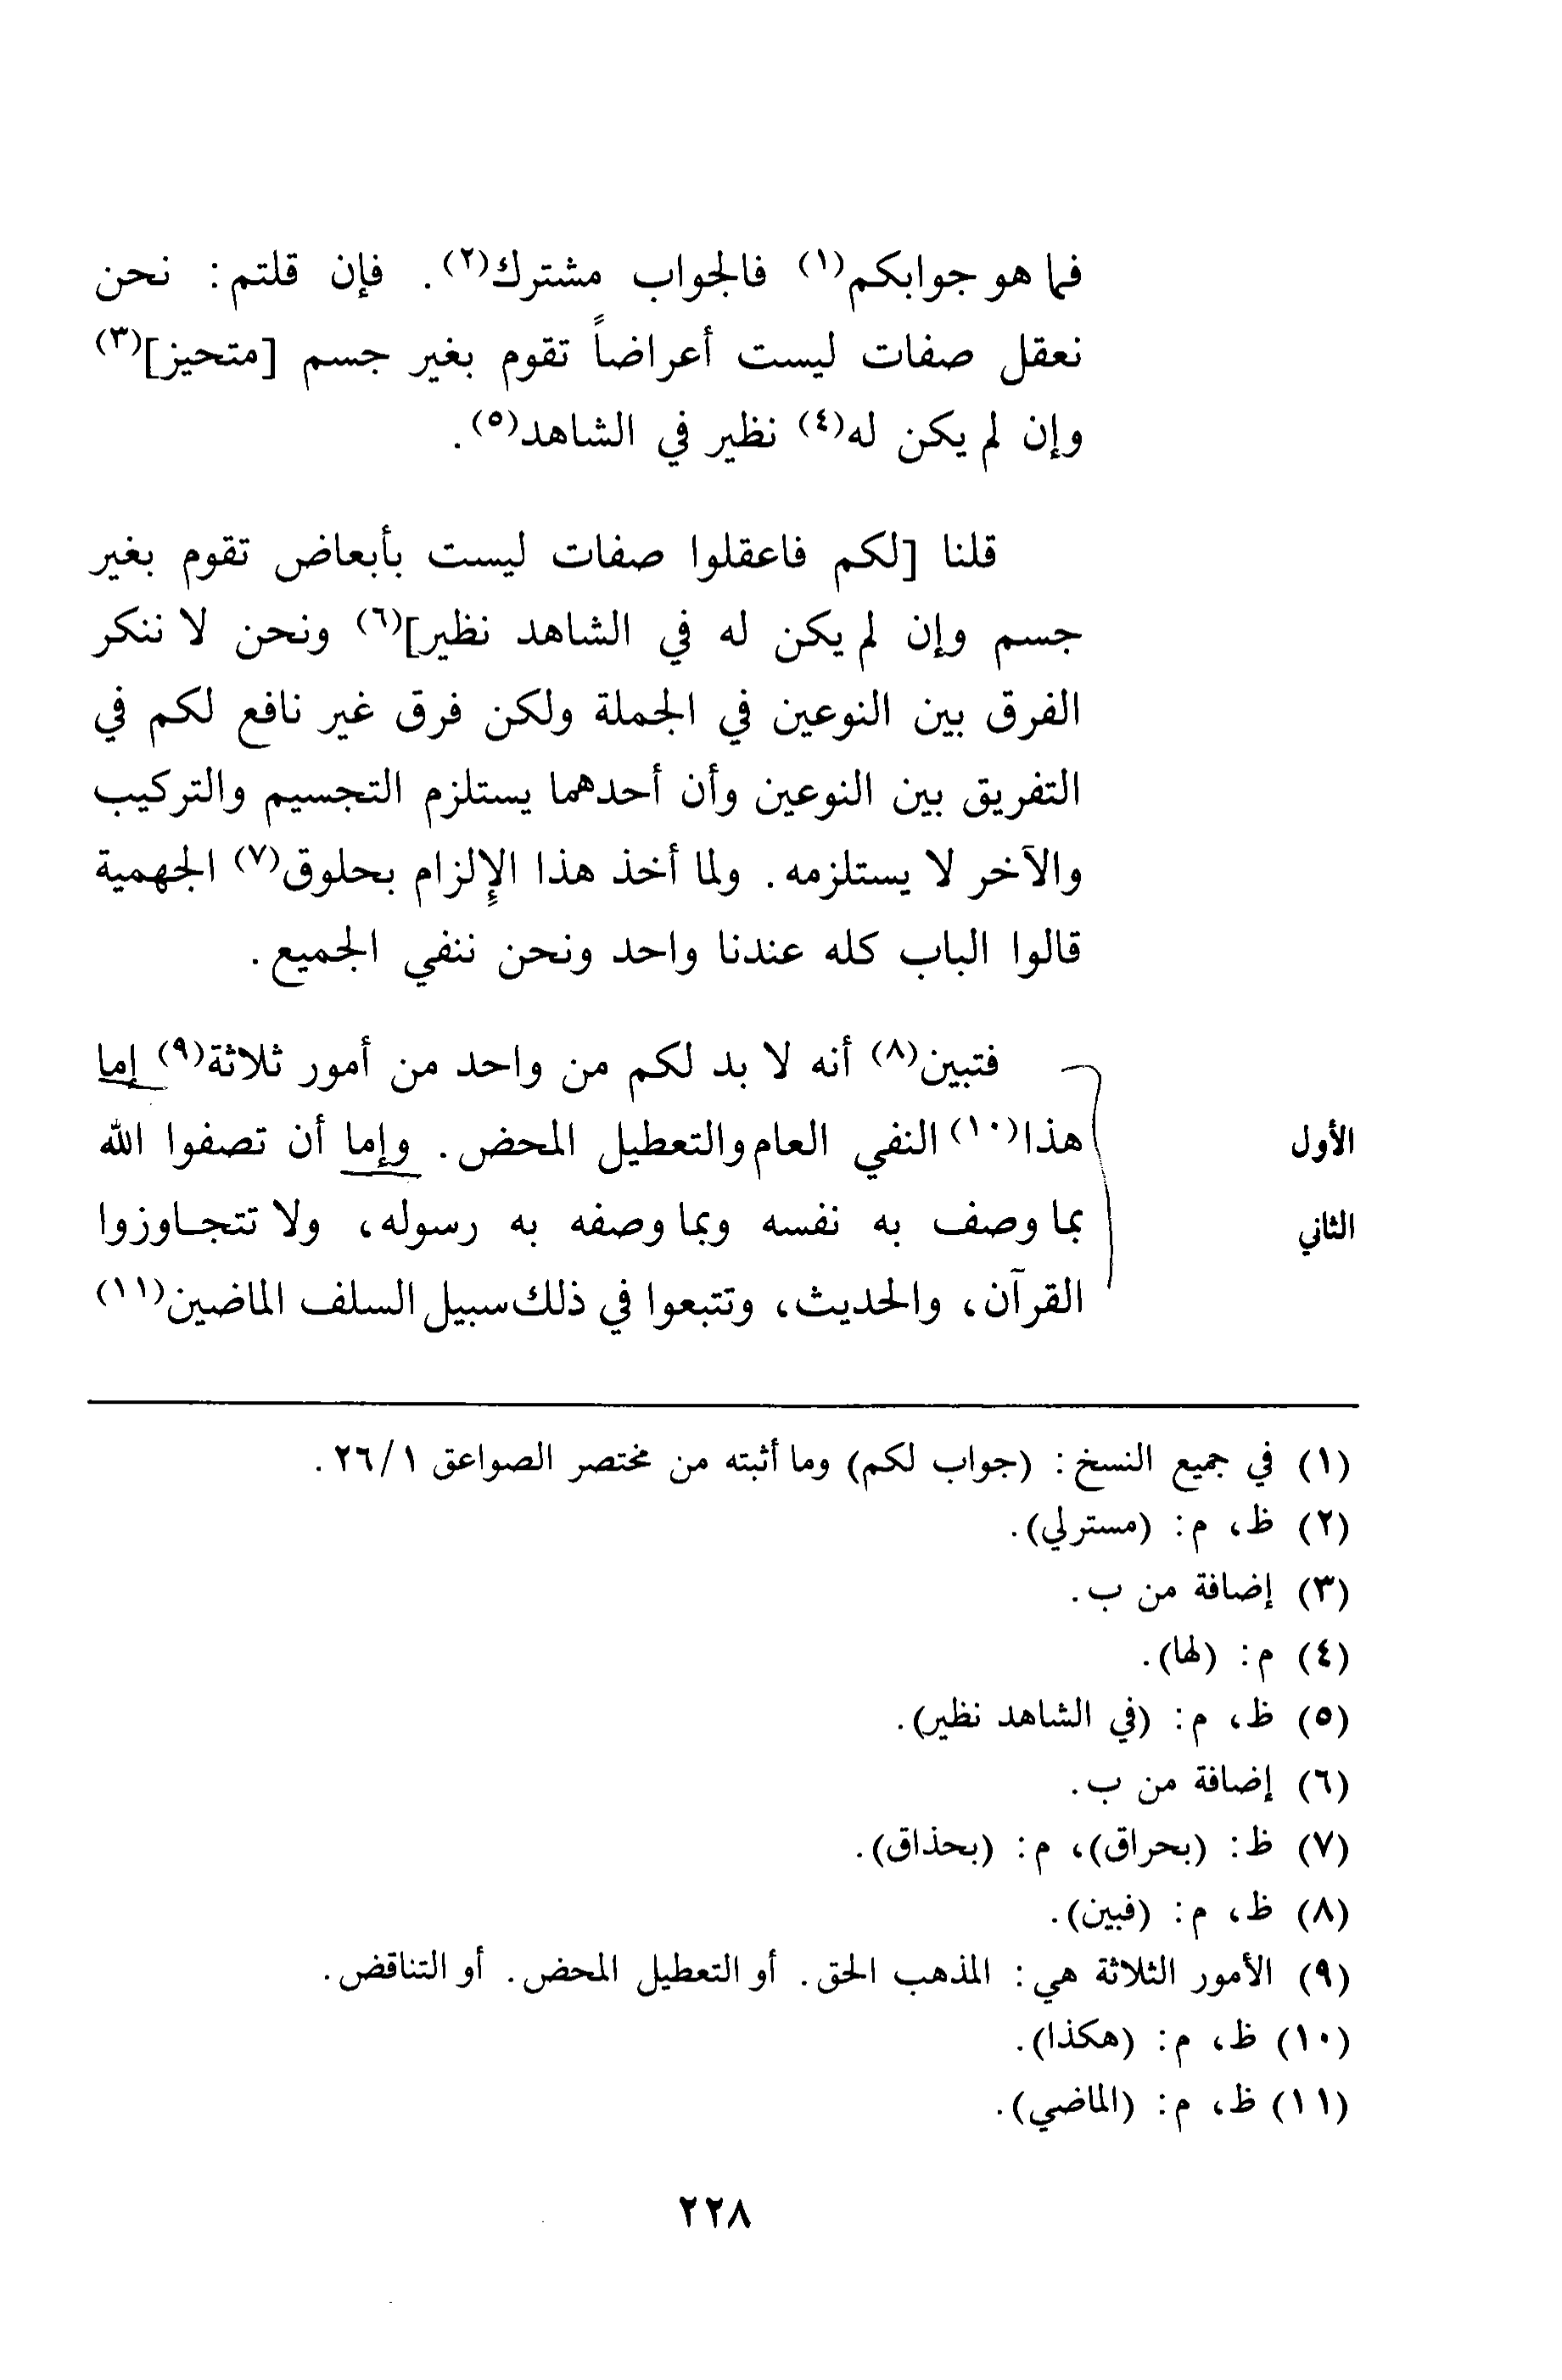 فما هو جوابكم(١) فالجواب مشترك(٢). فإن قلتم: نحن
نعقل صفات ليست أعراضاً تقوم بغير جسم [متحيز](٣)
وإن لم يكن له(٤) نظير في الشاهد(٥).
قلنا [لكم فاعقلوا صفات ليست بأبعاض تقوم بغير
جسم وإن لم يكن له في الشاهد نظير](٦) ونحن لا ننكر
الفرق بين النوعين في الجملة ولكن فرق غير نافع لكم في
التفريق بين النوعين وأن أحدهما يستلزم التجسيم والتركيب
والآخر لا يستلزمه. ولما أخذ هذا الإلزام بحلوق(٧) الجهمية
قالوا الباب كله عندنا واحد ونحن ننفي الجميع.
فتبين(٨) أنه لا بد لكم من واحد من أمور ثلاثة(٩) إما
الأول هذا(١٠) النفي العام والتعطيل المحض. وإما أن تصفوا الله
الثاني بما وصف به نفسه وبما وصفه به رسوله، ولا تتجـاوزوا
القرآن، والحديث، وتتبعوا في ذلك سبيل السلف الماضين(١١)
(١) في جميع النسخ: (جواب لكم) وما أثبته من مختصر الصواعق ٢٦/١.
(٢) ظ، م: (مسترلي).
(٣) إضافة من ب.
(٤) م: (لها).
(٥) ظ، م: (في الشاهد نظير).
(٦) إضافة من ب.
(٧) ظ: (بحراق)، م: (بحذاق).
(٨) ظ، م: (فبين).
(٩) الأمور الثلاثة هي: المذهب الحق. أو التعطيل المحض. أو التناقض.
(١٠) ظ، م: (هكذا).
(١١) ظ، م: (الماضي).
٢٢٨